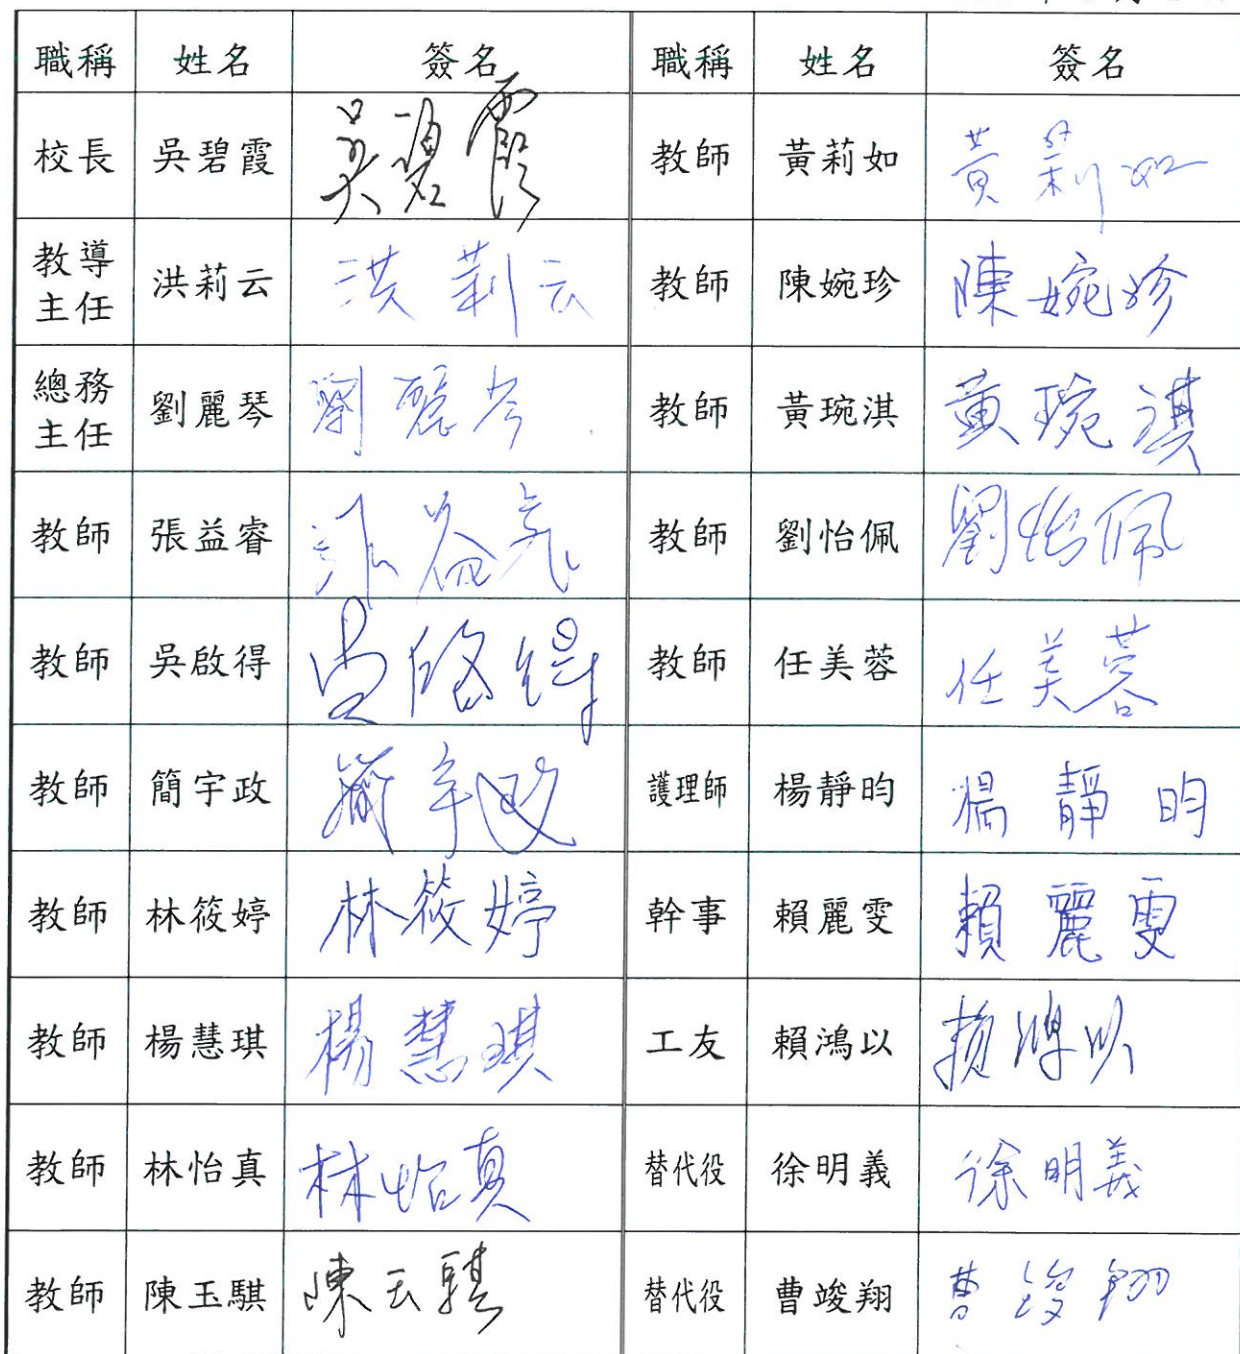 職稱 姓名 簽名 職稱 姓名 簽名
校長 吳碧霞 吳碧霞 教師 黃莉如 黃莉如
教導主任 洪莉云 洪莉云 教師 陳婉珍 陳婉珍
總務主任 劉麗琴 劉麗琴 教師 黃琬淇 黃琬淇
教師 張益睿 張益睿 教師 劉怡佩 劉怡佩
教師 吳啟得 吳啟得 教師 任美蓉 任美蓉
教師 簡宇政 簡宇政 護理師 楊靜昀 楊靜昀
教師 林筱婷 林筱婷 幹事 賴麗雯 賴麗雯
教師 楊慧琪 楊慧琪 工友 賴鴻以 賴鴻以
教師 林怡真 林怡真 替代役 徐明義 徐明義
教師 陳玉騏 陳玉騏 替代役 曹竣翔 曹竣翔